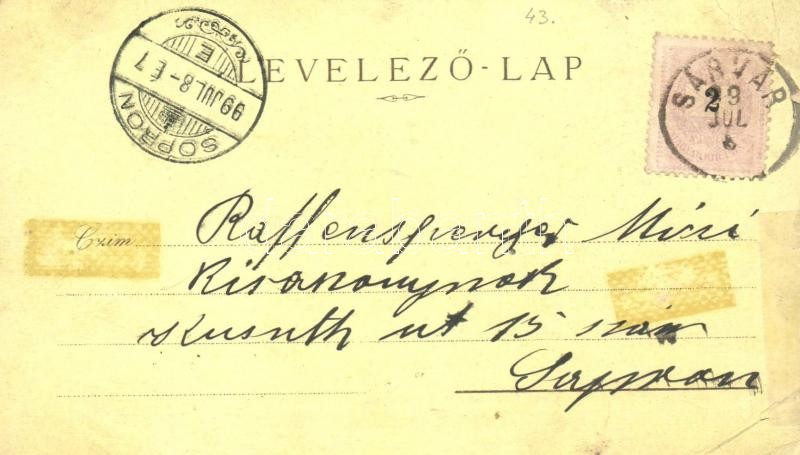 43.
LEVELEZŐ-LAP
SOPRON
99 JUL 8-E 7
SÁRVÁR
2
JUL
Czim
Raffensperger Mici
Kisakonynak
Kusuth ut 15 szám
Sopron